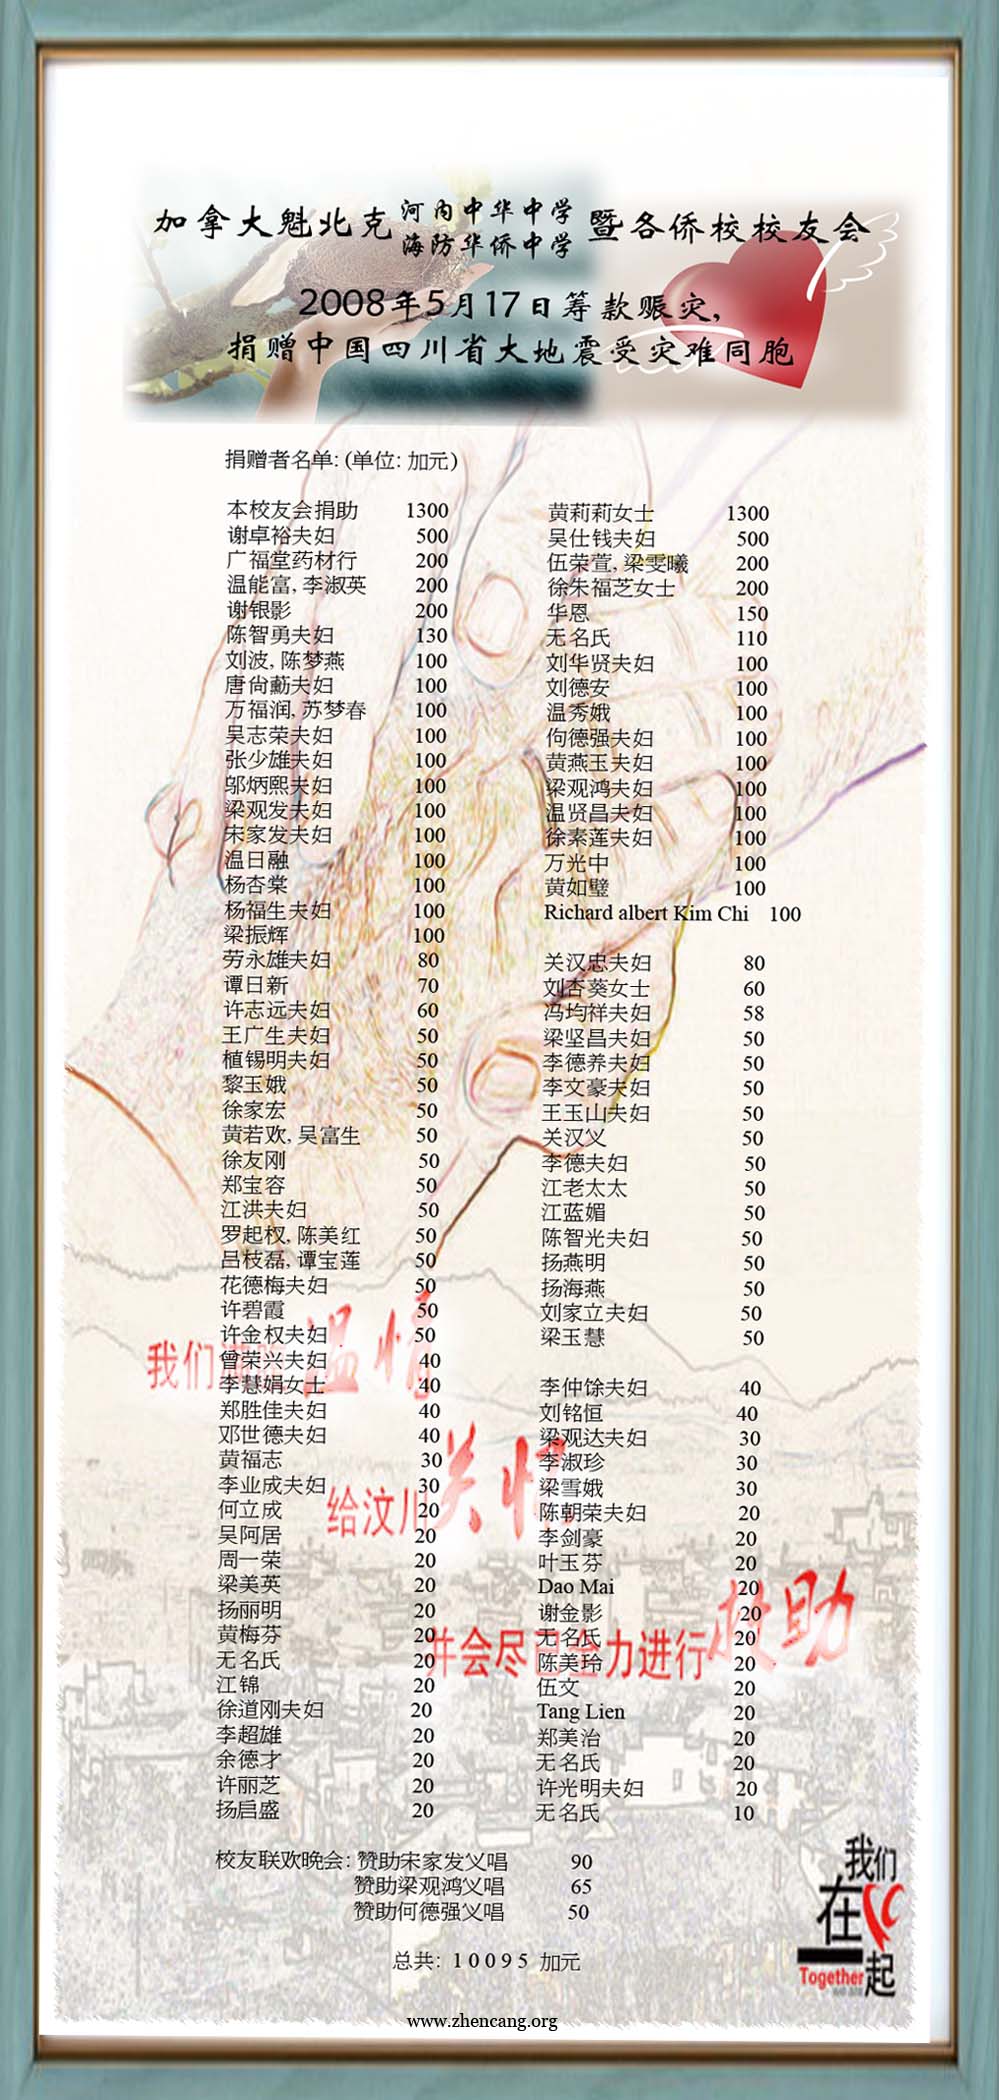 加拿大魁北克河内中华中学暨各侨校校友会
海防华侨中学
2008年5月17日筹款赈灾,
捐赠中国四川省大地震受灾难同胞
捐赠者名单: (单位: 加元)
本校友会捐助 1300 黄莉莉女士 1300
谢卓裕夫妇 500 吴仕钱夫妇 500
广福堂药材行 200 伍荣萱, 梁雯曦 200
温能富, 李淑英 200 徐朱福芝女士 200
谢银影 200 华恩 150
陈智勇夫妇 130 无名氏 110
刘波, 陈梦燕 100 刘华贤夫妇 100
唐尙勷夫妇 100 刘德安 100
万福润, 苏梦春 100 温秀娥 100
吴志荣夫妇 100 佝德强夫妇 100
张少雄夫妇 100 黄燕玉夫妇 100
邬炳熙夫妇 100 梁观鸿夫妇 100
梁观发夫妇 100 温贤昌夫妇 100
宋家发夫妇 100 徐素莲夫妇 100
温日融 100 万光中 100
杨杏棠 100 黄如璧 100
杨福生夫妇 100 Richard albert Kim Chi 100
梁振辉 100
劳永雄夫妇 80 关汉忠夫妇 80
谭日新 70 刘杏葵女士 60
许志远夫妇 60 冯均祥夫妇 58
王广生夫妇 50 梁坚昌夫妇 50
植锡明夫妇 50 李德养夫妇 50
黎玉娥 50 李文豪夫妇 50
徐家宏 50 王玉山夫妇 50
黄若欢, 吴富生 50 关汉义 50
徐友刚 50 李德夫妇 50
郑宝容 50 江老太太 50
江洪夫妇 50 江蓝媚 50
罗起杈, 陈美红 50 陈智光夫妇 50
吕枝磊, 谭宝莲 50 扬燕明 50
花德梅夫妇 50 扬海燕 50
许碧霞 50 刘家立夫妇 50
许金权夫妇 50 梁玉慧 50
曾荣兴夫妇 40
李慧娟女士 40 李仲馀夫妇 40
郑胜佳夫妇 40 刘铭恒 40
邓世德夫妇 40 梁观达夫妇 30
黄福志 30 李淑珍 30
李业成夫妇 30 梁雪娥 30
何立成 20 陈朝荣夫妇 20
吴阿居 20 李剑豪 20
周一荣 20 叶玉芬 20
梁美英 20 Dao Mai 20
扬丽明 20 谢金影 20
黄梅芬 20 无名氏 20
无名氏 20 陈美玲 20
江锦 20 伍文 20
徐道刚夫妇 20 Tang Lien 20
李超雄 20 郑美治 20
余德才 20 无名氏 20
许丽芝 20 许光明夫妇 20
扬启盛 20 无名氏 10
我们 温情
给汶川关怀
并会尽己全力进行救助
校友联欢晚会: 赞助宋家发义唱 90
赞助梁观鸿义唱 65
赞助何德强义唱 50
总共: 10095 加元
我们
在一起
Together
www.zhencang.org